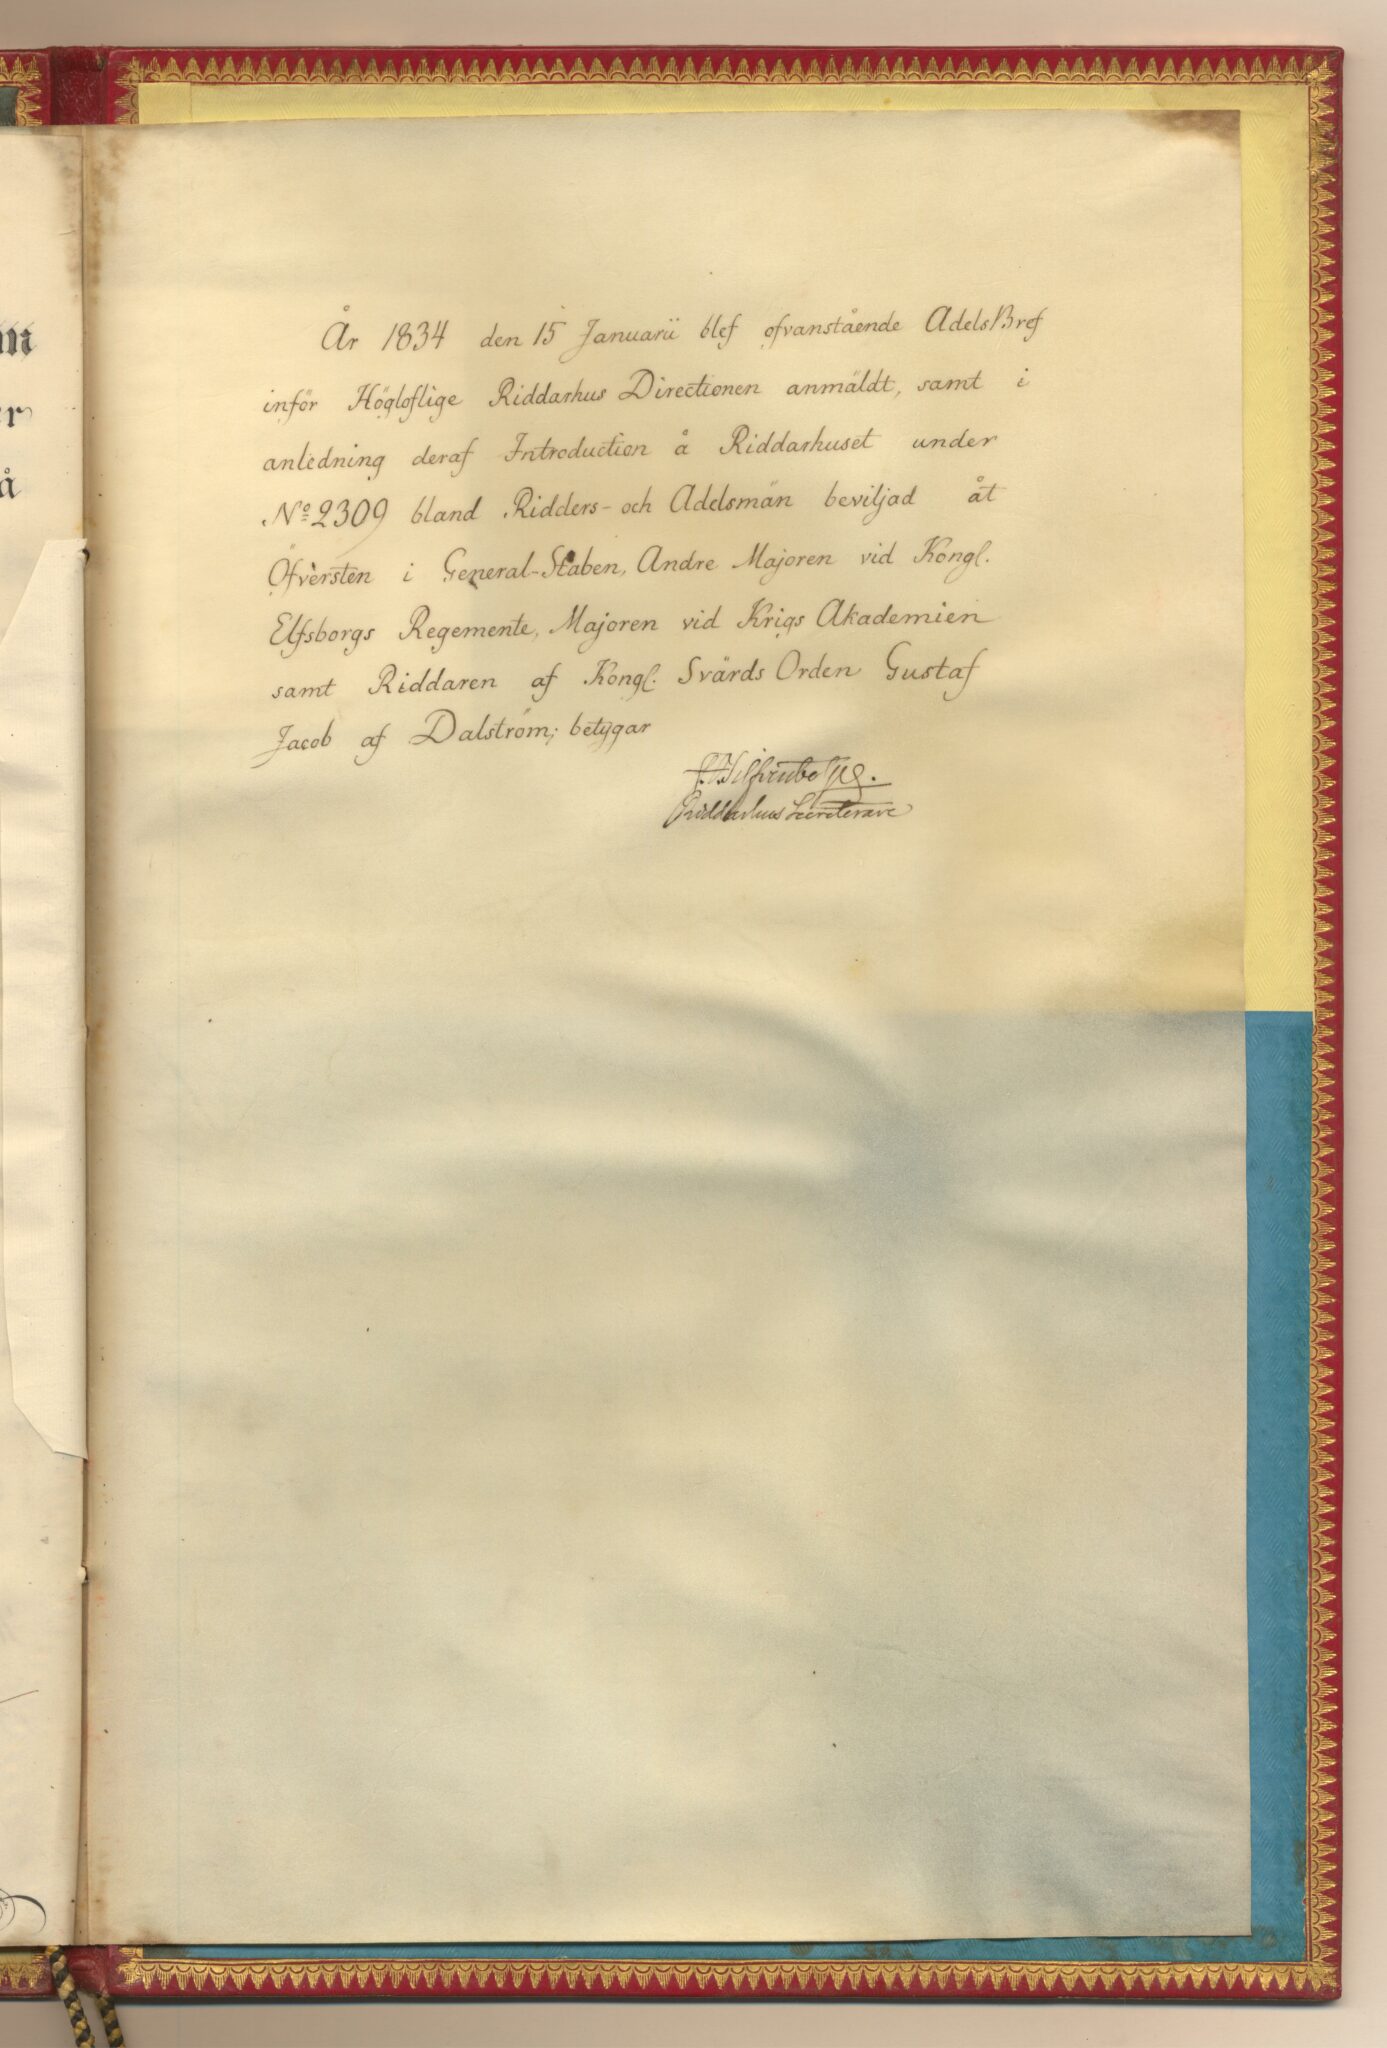 År 1834 den 15 Januarii blef ofvanstående AdelsBref
inför Högloflige Riddarhus Directionen anmäldt, samt i
anledning deraf Introduction å Riddarhuset under
No 2309 bland Ridders- och Adelsmän beviljad åt
Öfversten i General-Staben, Andre Majoren vid Kongl.
Elfsborgs Regemente, Majoren vid Krigs Akademien
samt Riddaren af Kongl. Svärds Orden Gustaf
Jacob af Dalström; betygar
Riddarhus Secreterare
å